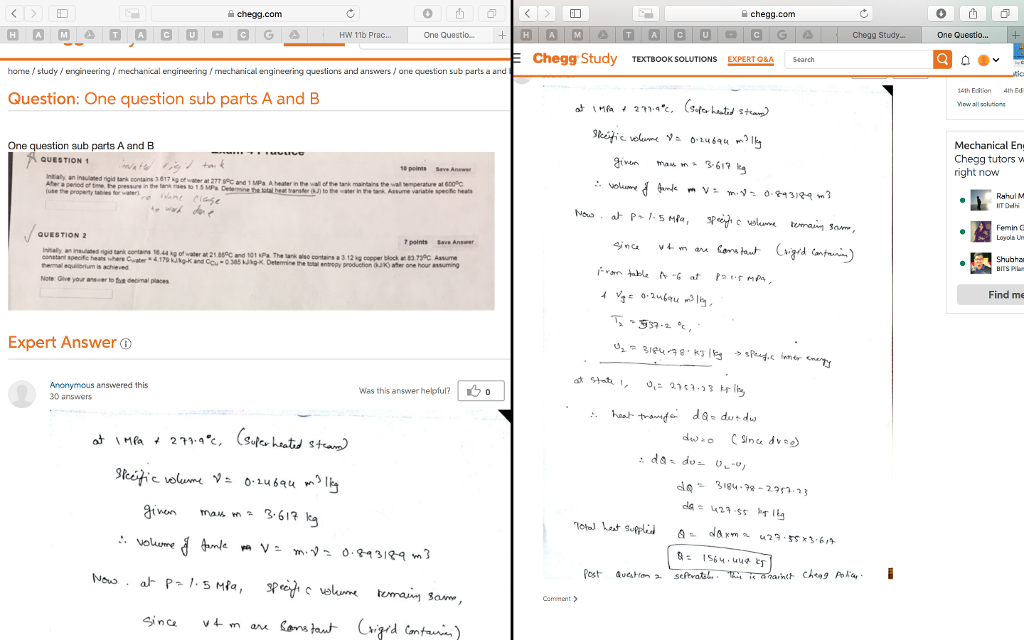 chegg.com
HW 11b Prac...
One Questio...
home / study / engineering / mechanical engineering / mechanical engineering questions and answers / one question sub parts a and
Question: One question sub parts A and B
One question sub parts A and B
QUESTION 1
10 points
Save Answer
Initially, an insulated rigid tank contains 3.617 kg of water at 277.9°C and 1 MPa. A heater in the wall of the tank maintains the wall temperature at 600°C.
After a period of time, the pressure in the tank rises to 1.5 MPa. Determine the total heat transfer (kJ) to the water in the tank. Assume variable specific heats
(use the property tables for water).
no work done
QUESTION 2
7 points
Save Answer
Initially, an insulated rigid tank contains 16.44 kg of water at 21.85°C and 101 kPa. The tank also contains a 3.12 kg copper block at 83.73°C. Assume
constant specific heats where Cwater = 4.179 kJ/kg-K and CCu = 0.385 kJ/kg-K. Determine the total entropy production (kJ/K) after one hour assuming
thermal equilibrium is achieved.
Note: Give your answer to five decimal places.
Expert Answer
Anonymous answered this
30 answers
Was this answer helpful?
0
at 1 MPa & 277.9°C, (Superheated steam)
Specific volume V = 0.24694 m3/kg
given mass m = 3.617 kg
∴ volume of tank V = m.v = 0.893189 m3
Now. at P = 1.5 MPa, specific volume remains same,
since v & m are constant (rigid container)
chegg.com
Chegg Study...
One Questio...
Chegg Study
TEXTBOOK SOLUTIONS
EXPERT Q&A
Search
14th Edition
4th Edi
View all solutions
at 1 MPa & 277.9°C, (Superheated steam)
Specific volume V = 0.24694 m3/kg
given mass m = 3.617 kg
∴ volume of tank V = m.v = 0.893189 m3
Now. at P = 1.5 MPa, specific volume remains same,
since v & m are constant (rigid container)
From table A-6 at P = 1.5 MPa,
& Vg = 0.24694 m3/kg,
T2 = 537.2 °C,
U2 = 3184.78 KJ/kg → specific inner energy
at state 1, U1 = 2757.23 KJ/kg
∴ heat transfer dQ = du + dw
dw = 0 (Since dv = 0)
∴ dQ = du = U2 - U1
dQ = 3184.78 - 2757.23
dQ = 427.55 KJ/kg
Total heat supplied Q = dQ x m = 427.55 x 3.617
Q = 1564.448 KJ
Post question 2 seperately. This is against Chegg Policy.
Comment
Mechanical Eng
Chegg tutors w
right now
Rahul M
IIT Delhi
Femin G
Loyola Un
Shubha
BITS Pilan
Find me